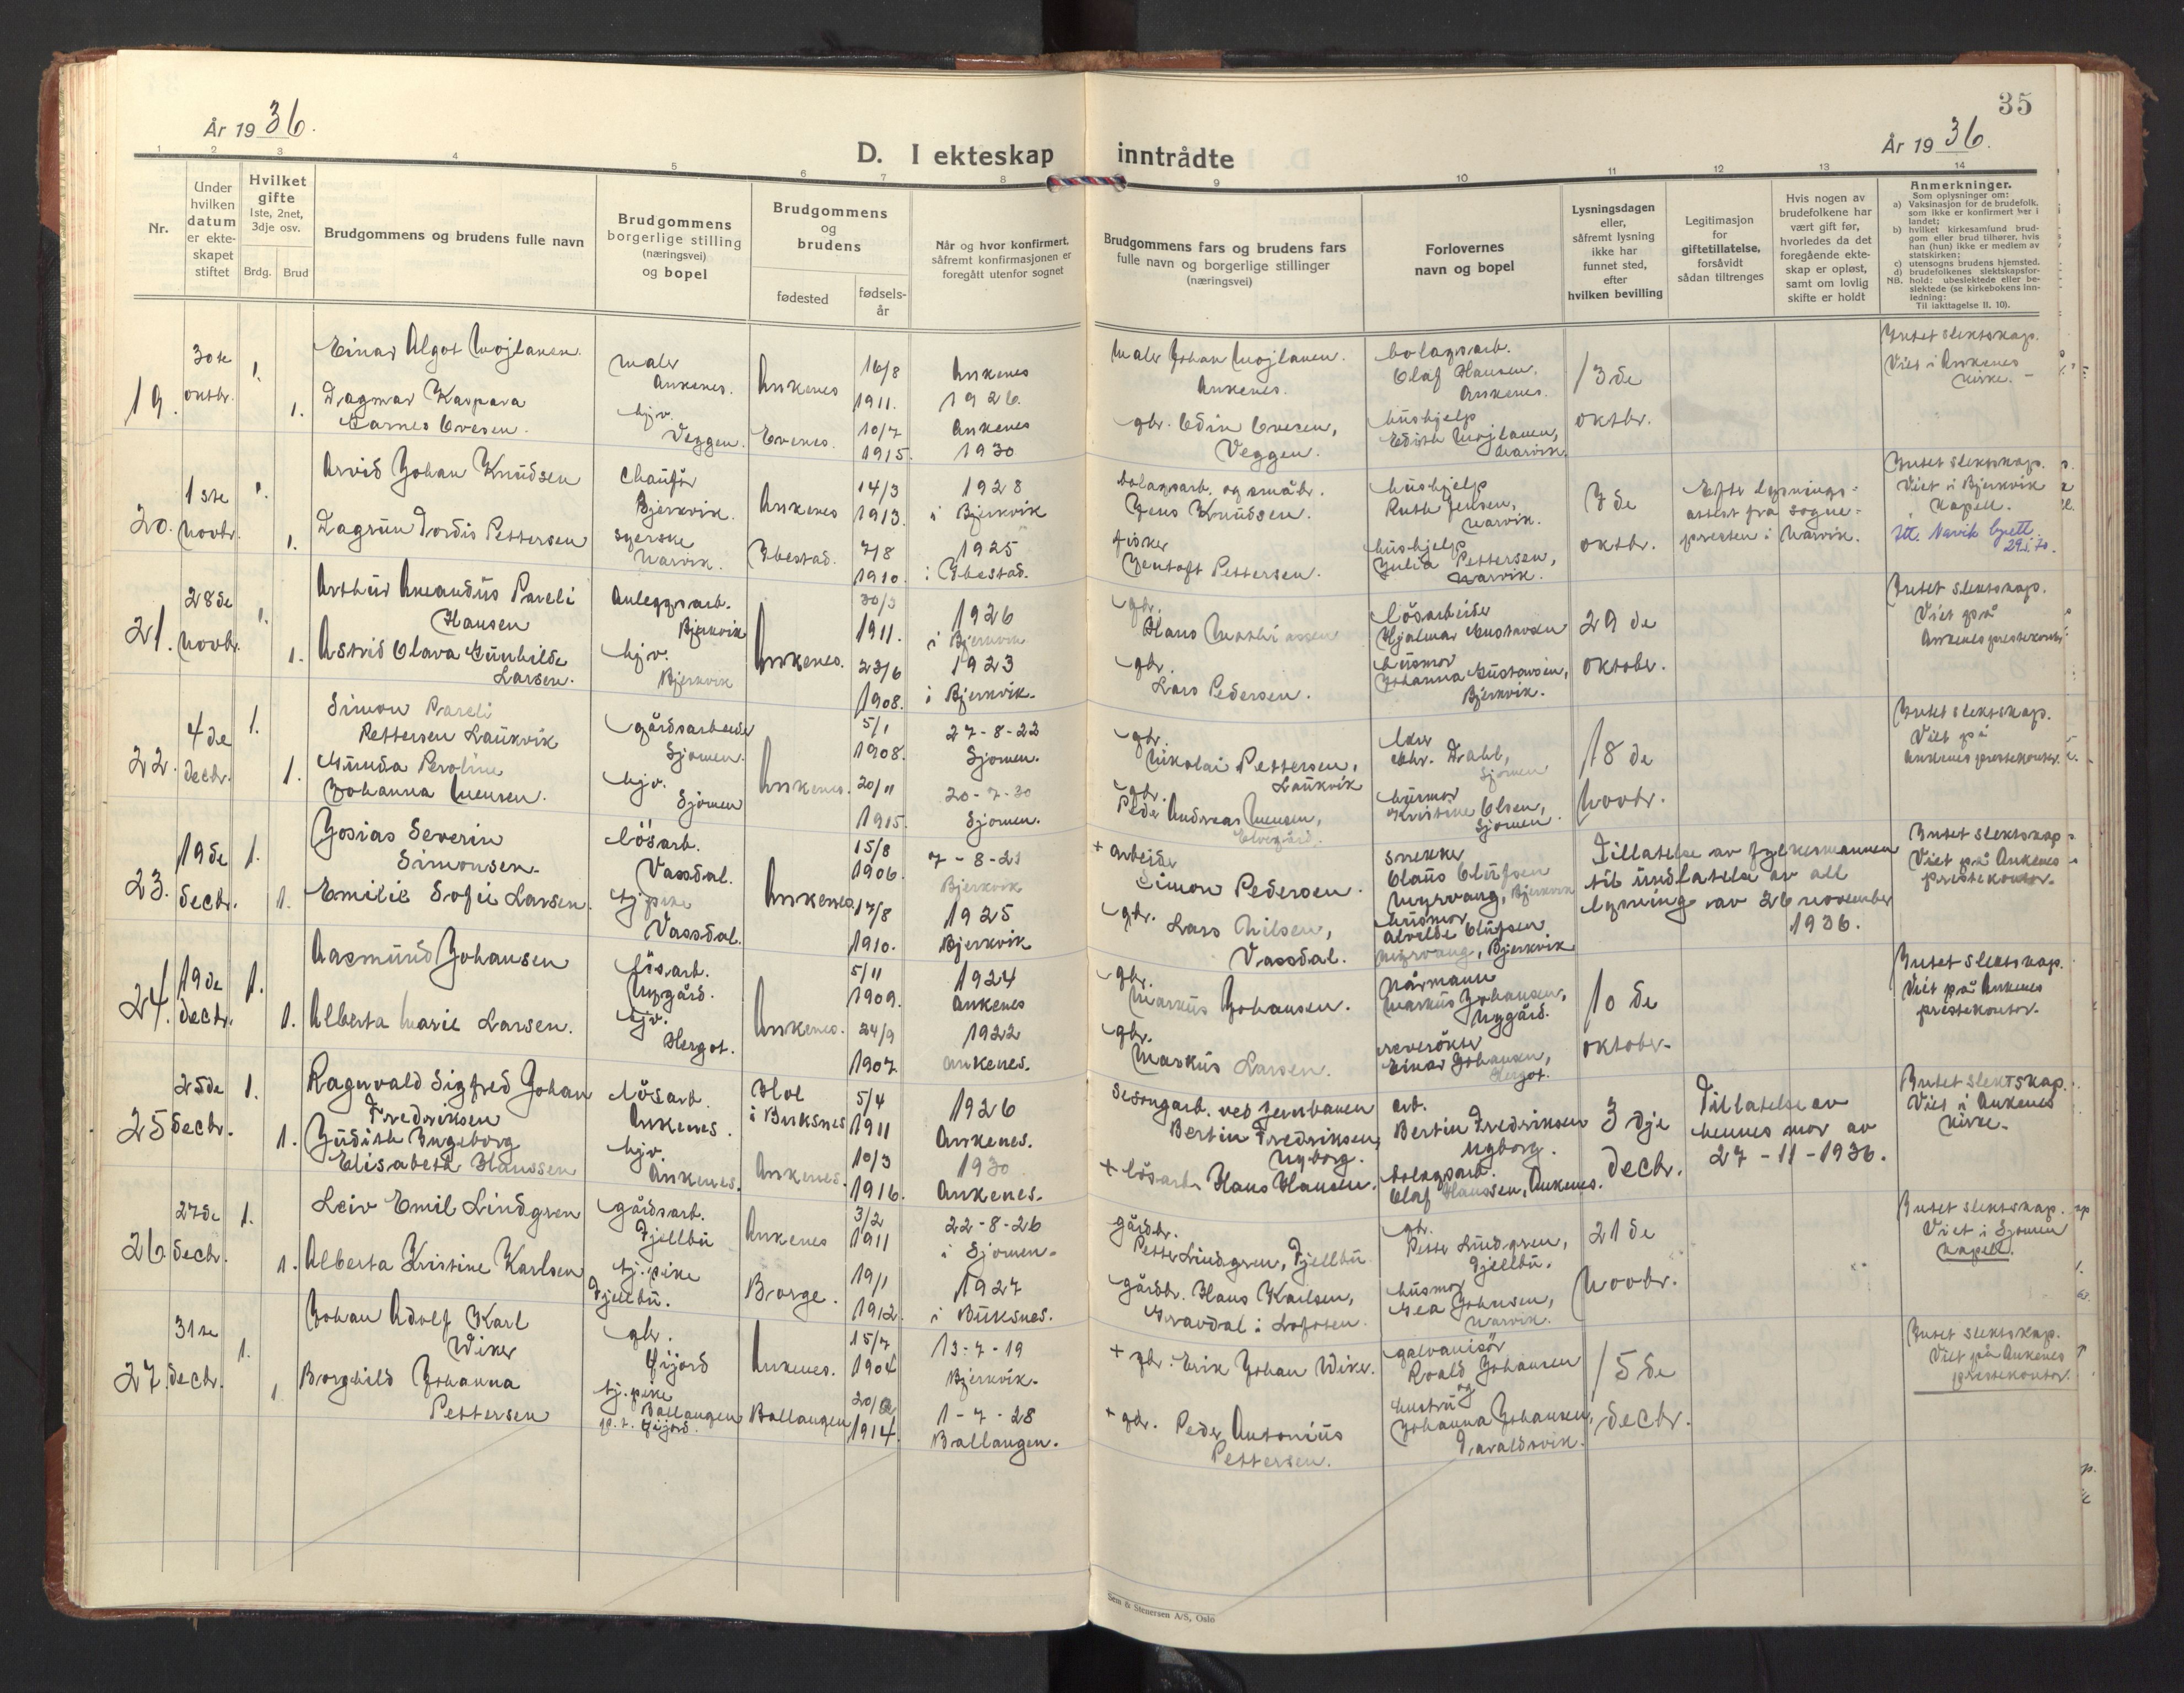 35
År 1936.
År 1936.
D. I ekteskap inntrådte
1 2 3 4 5 6 7 8 9 10 11 12 13 14
Nr.
Under
hvilken
datum
er ekte-
skapet
stiftet
Hvilket
gifte
1ste, 2net,
3dje osv.
Brdg. Brud
Brudgommens og brudens fulle navn
Brudgommens
borgerlige stilling
(næringsvei)
og bopel
Brudgommens
og
brudens
fødested
fødsels-
år
Når og hvor konfirmert,
såfremt konfirmasjonen er
foregått utenfor sognet
Brudgommens fars og brudens fars
fulle navn og borgerlige stillinger
(næringsvei)
Forlovernes
navn og bopel
Lysningsdagen
eller,
såfremt lysning
ikke har
funnet sted,
efter
hvilken bevilling
Legitimasjon
for
giftetillatelse,
forsåvidt
sådan tiltrenges
Hvis nogen av
brudefolkene har
vært gift før,
hvorledes da det
foregående ekte-
skap er opløst,
samt om lovlig
skifte er holdt
Anmerkninger.
Som oplysninger om:
a) Vaksinasjon for de brudefolk,
som ikke er konfirmert her i
landet;
b) hvilket kirkesamfund brud-
gom eller brud tilhører, hvis
han (hun) ikke er medlem av
statskirken;
c) utensogns brudens hjemsted.
d) brudefolkenes slektskapsfor-
NB. hold: ubeslektede eller be-
slektede (se kirkebokens inn-
ledning:
Til iakttagelse II. 10).
19.
30te
oktbr.
1.
1.
Einar Algot Mojlanen
Dagmar Kaspara
Ovesen.
maler
Ankenes.
hjv.
Veggen.
Ankenes
Evenes.
16/8
1911.
10/7
1915.
Ankenes
1926.
Ankenes
1930
Maler Johan Mojlanen.
Ankenes.
gbr. Edin Ovesen,
Veggen.
bolagsarb.
Olaf Hansen,
Ankenes.
hushjelp
Edith Mojlanen,
Narvik.
13de
oktbr.
Intet slektskap.
Viet i Ankenes
kirke. –
20.
1ste
Novbr.
1.
1.
Arvid Johan Knudsen
Dagrun Tordis Pettersen
Chaufør
Bjerkvik.
syerske
Narvik.
Ankenes
Ibestad.
14/3
1913.
7/8
1910.
1928
i Bjerkvik
1925
i Ibestad.
bolagsarb. og småbr.
Jens Knudsen.
fisker
Jentoft Pettersen.
hushjelp
Ruth Jensen,
Narvik.
hushjelp
Julia Pettersen,
Narvik.
7de
oktbr.
Efter lysnings-
attest fra sogne-
presten i Narvik.
Intet slektskap.
Viet i Bjerkvik
kapell.
21.
28de
Novbr.
1.
1.
Arthur Amandus Pareli
Hansen
Astrid Olava Gunhilde
Larsen.
Anleggsarb.
Bjerkvik
hjv.
Bjerkvik
Ankenes.
1911.
23/6
1908.
1926
i Bjerkvik
1923
i Bjerkvik.
gbr.
Hans Mathiassen
gbr.
Lars Pedersen.
lösarbeider
Hjalmar Gustavsen
husmor
Johanna Gustavsen,
Bjerkvik.
29de
oktober.
Intet slektskap.
Viet på
Ankenes prestekontor.
22.
4de
decbr.
1.
1.
Simon Pareli
Pettersen Laukvik
Gunda Peroline
Johanna Monsen.
gårdsarbeider
Sjomen.
hjv.
Sjomen
Ankenes.
5/1
1908.
20/11
1915.
27-8-22
Sjomen.
20-7-30
Sjomen.
gbr.
Nikolai Pettersen,
Laukvik
gbr.
Peder Andreas Monsen,
Elvegård.
Chr. Dahl,
Sjomen
husmor
Kristine Olsen,
Sjomen.
18de
Novbr.
Intet slektskap.
Viet på
Ankenes prestekontor.
23.
19de
decbr.
1.
1.
Josias Severin
Simonsen.
Emilie Sofie Larsen.
lösarb.
Vassdal.
tj.pike
Vassdal.
Ankenes
15/8
1906.
17/8
1910.
7-8-21
Bjerkvik
1925
Bjerkvik
+ arbeider
Simon Pedersen.
gbr. Lars Nilsen,
Vassdal.
snekker
Olaus Olufsen
Myrvang, Bjerkvik
husmor
Alvilde Olufsen
Myrvang, Bjerkvik
Tillatelse av fylkesmannen
til undlatelse av all
lysning av 26 november
1936.
Intet slektskap
Viet på Ankenes
prestekontor.
24.
19de
decbr.
1.
1.
Aasmund Johansen
Alberta Marie Larsen.
lösarb.
Nygård.
hjv.
Hergot.
Ankenes.
5/11
1909.
24/9
1907
1924
Ankenes
1922
Ankenes.
gbr.
Markus Johansen.
gbr.
Markus Larsen.
Markus Johansen,
Nygård.
Einar Johansen,
Hergot.
10de
oktober.
Intet slektskap.
Viet på Ankenes
prestekontor.
25
25de
decbr.
1.
1.
Ragnvald Sigfred Johan
Fredriksen
Judith Ingeborg
Elisabeth Hanssen
lösarb.
Ankenes.
hjv.
Ankenes.
Hol
i Buksnes
Ankenes.
5/4
1911
10/3
1916.
1926
Ankenes.
1930
Ankenes.
Sesongarb. ved Jernbanen
Bertin Fredriksen,
Nyborg.
+ lösarb. Hans Hansen.
arb.
Bertin Fredriksen
Nyborg.
bolagsarb.
Olaf Hanssen, Ankenes.
3dje
decbr.
Tillatelse av
hennes mor av
27-11-1936.
Intet slektskap.
Viet i Ankenes
kirke.
26.
27de
decbr.
1.
1.
Leiv Emil Lindgren
Alberta Kristine Karlsen
gårdsarb.
Fjellbu
tj.pike
Fjellbu.
Ankenes
Borge.
3/2
1911
19/1
1912.
22-8-26
i Sjomen.
1927
i Buksnes.
gårdbr.
Petter Lindgren, Fjellbu
gårdbr. Hans Karlsen,
Gravdal i Lofoten.
gbr.
Petter Lindgren,
Fjellbu.
husmor
Gea Johnsen,
Narvik.
21de
Novbr.
Intet slektskap.
Viet i Sjomen
kapell.
27.
31te
decbr.
1.
1.
Johan Adolf Karl
Wiker
Borghild Johanna
Pettersen
gbr.
Gijord
tj.pike
Ballangen
p.t. Gijord.
Ankenes.
Ballangen
15/7
1904
1914.
13-7-19
Bjerkvik.
1-7-28
Ballangen.
+ gbr. Erik Johan Wiker.
+ gbr. Peder Antonius
Pettersen.
galvanisör
Roald Johansen
og
hustru
Johanna Johansen,
Taraldsvik.
15de
decbr.
Intet slektskap.
Viet på Ankenes
prestekontor.
Sem & Stenersen A/S, Oslo